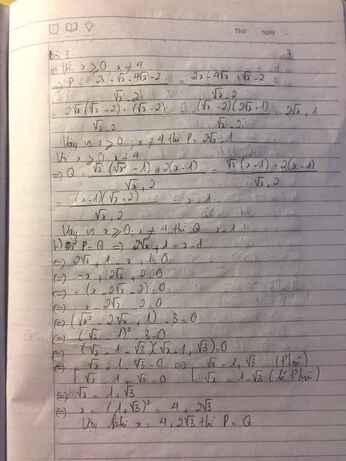 Thứ Ngày
Bài 3
a) Với x ≥ 0, x ≠ 4
=> P = 2x + √x - 4√x - 2 / √x - 2 = 2x - 4√x + √x - 2 / √x - 2
= 2√x(√x - 2) + (√x - 2) / √x - 2 = (√x - 2)(2√x + 1) / √x - 2 = 2√x + 1
Vậy với x ≥ 0, x ≠ 4 thì P = 2√x + 1
Với x ≥ 0, x ≠ 4
=> Q = √x(√x² - 1) + 2(x - 1) / √x + 2 = √x(x - 1) + 2(x - 1) / √x + 2
= (x - 1)(√x + 2) / √x + 2 = x - 1
Vậy với x ≥ 0, x ≠ 4 thì Q = x - 1
b) Để P = Q => 2√x + 1 = x - 1
<=> 2√x + 1 - x + 1 = 0
<=> -x + 2√x + 2 = 0
<=> -(x - 2√x - 2) = 0
<=> x - 2√x - 2 = 0
<=> (√x² - 2√x + 1) - 3 = 0
<=> (√x - 1)² - 3 = 0
<=> (√x - 1 - √3)(√x - 1 + √3) = 0
<=> √x - 1 - √3 = 0 <=> √x = 1 + √3
√x - 1 + √3 = 0 √x = 1 - √3
<=> √x = 1 + √3
<=> x = (1 + √3)² = 4 + 2√3
Vậy khi x = 4 + 2√3 thì P = Q